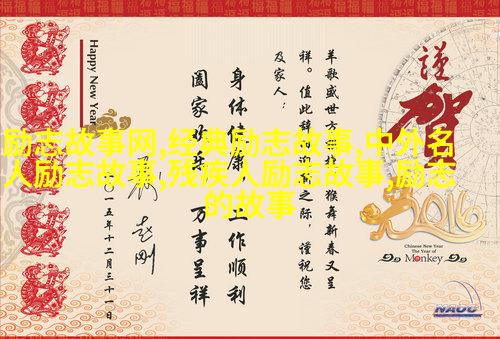 励志故事网,经典励志故事,中外名
人励志故事,残疾人励志故事,励志
的故事
谨
贺
2016
Chinese New Year
The Year of
Monkey
NAOC
羊歌盛世方
猴舞新春又呈
祥。值此辞
之际，谨祝您
及家人：
身体健康
工作顺利
阖家欢乐
万事呈祥
二〇一五年十二月三十一日
Happy New Year